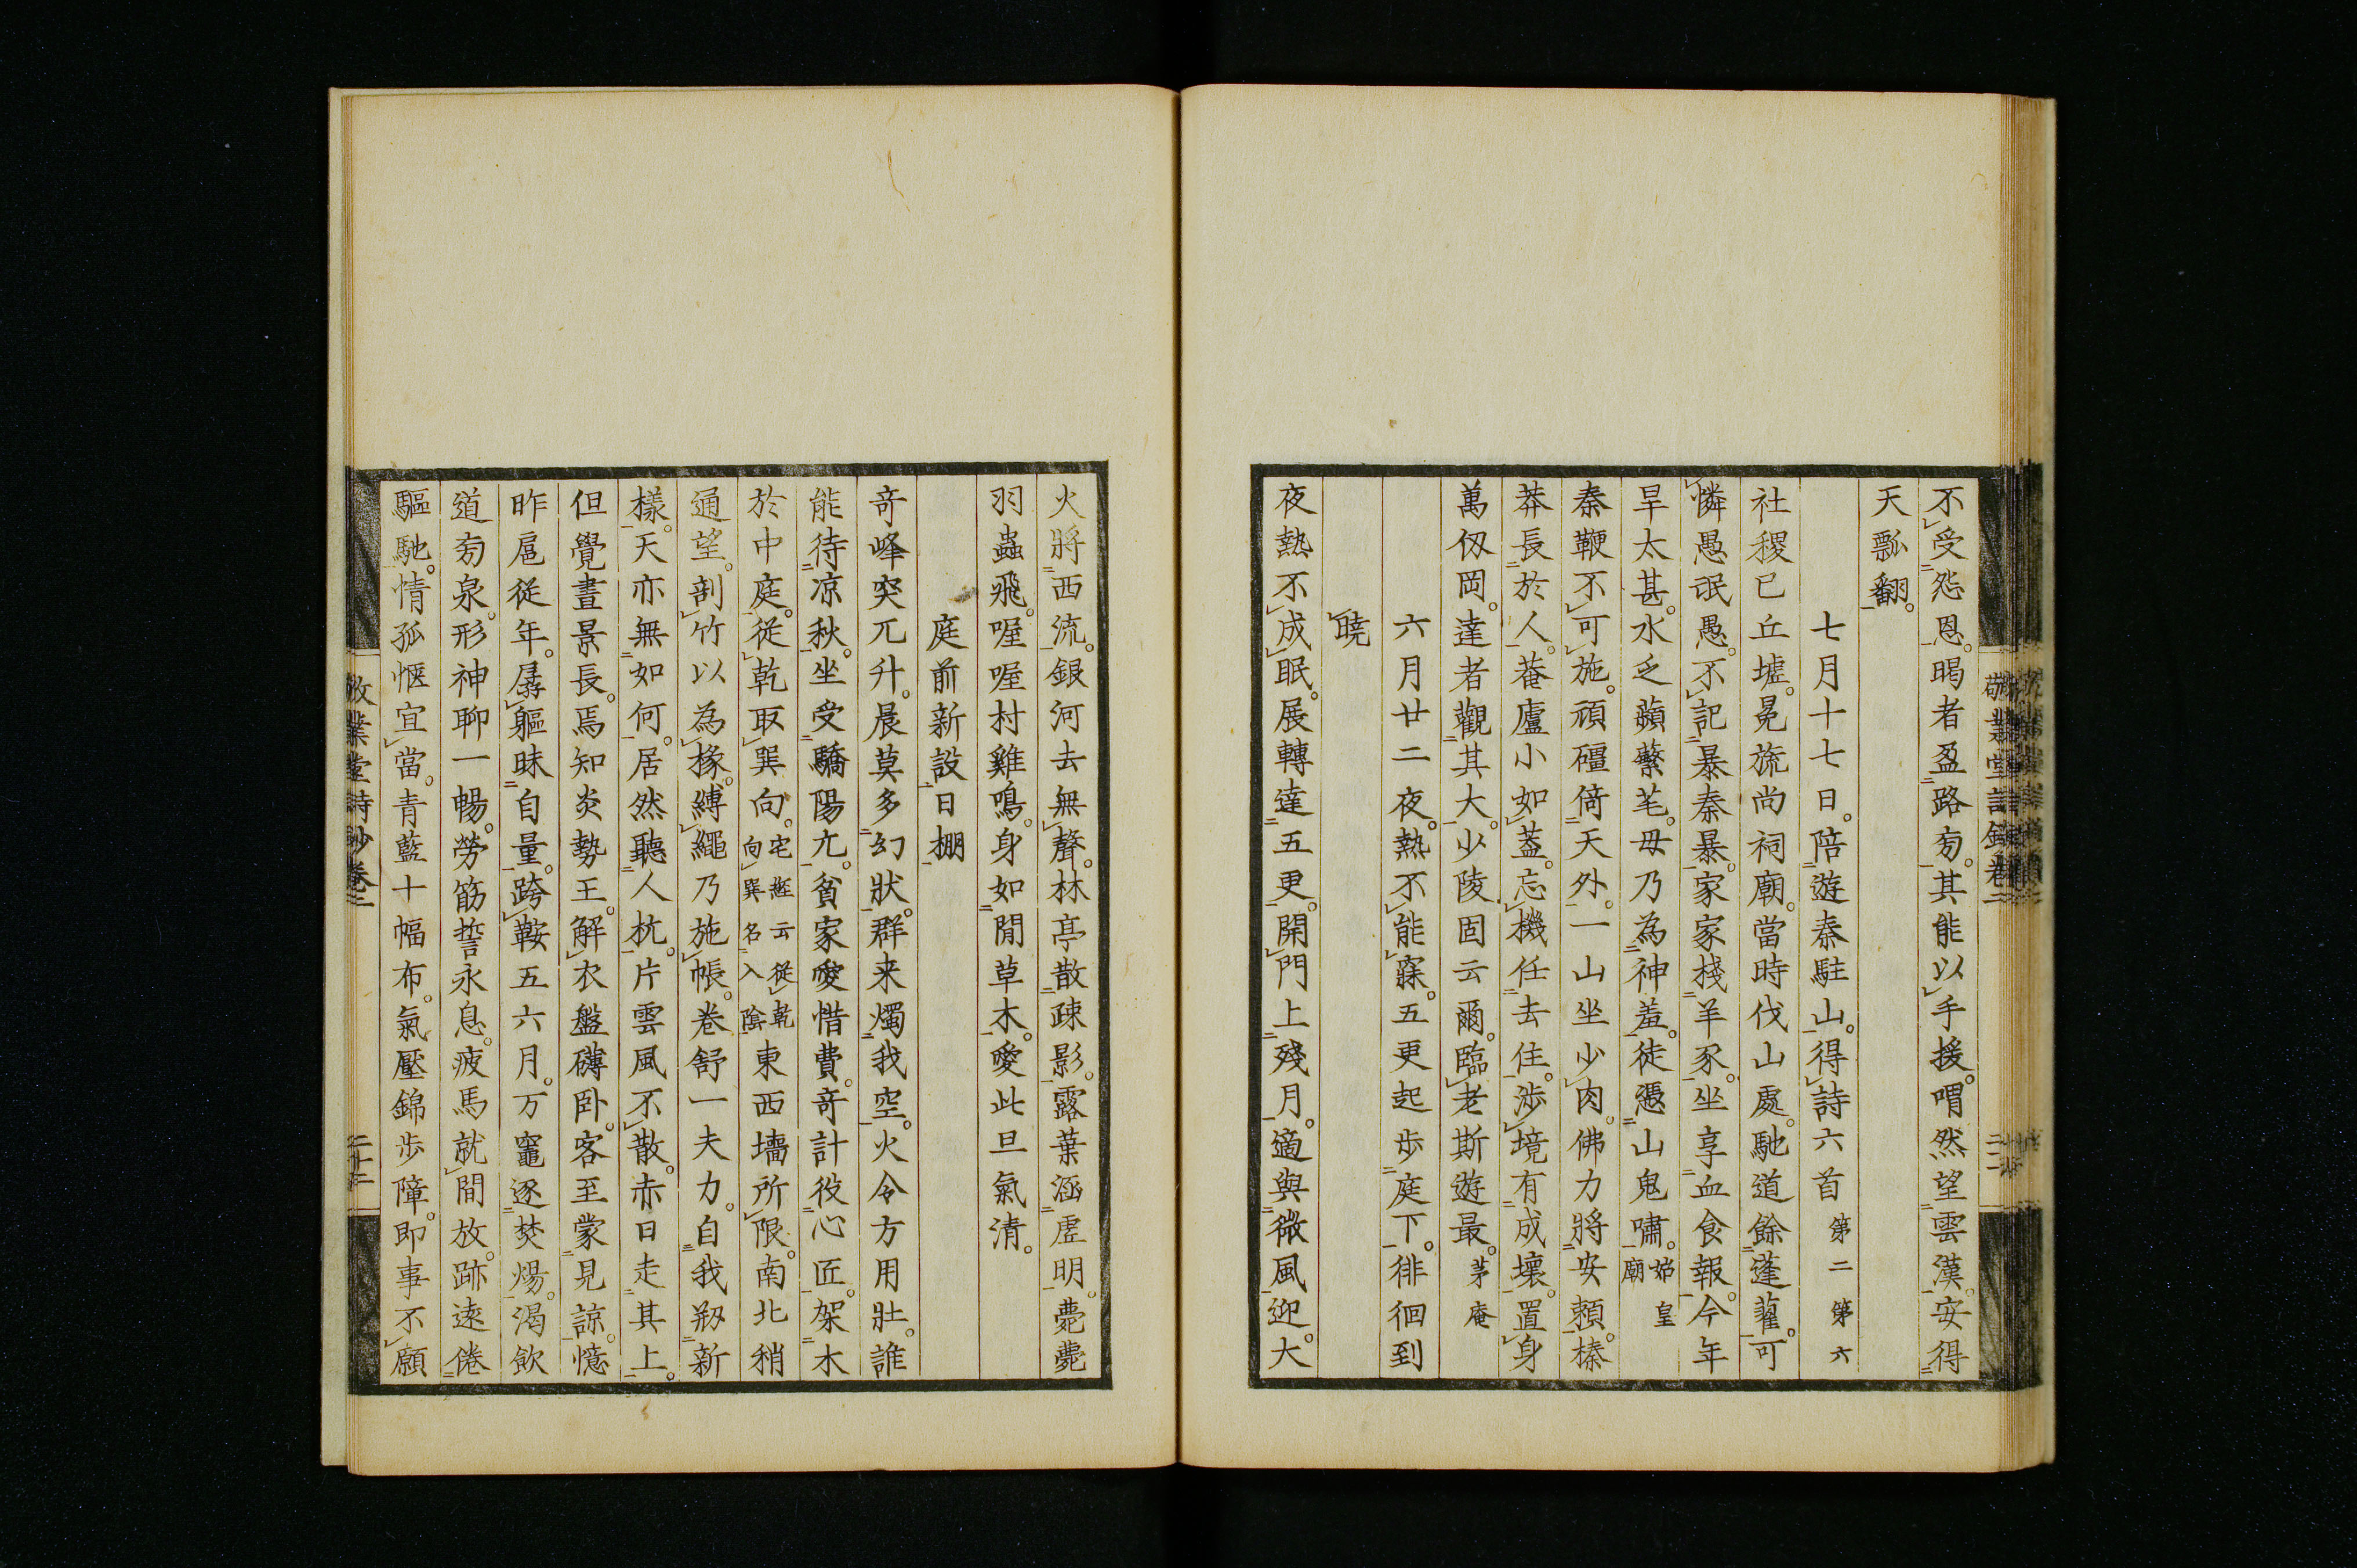 不受怨恩。暍者盈路旁。其能以手援。喟然望雲漢。安得
天瓢翻。
七月十七日。陪遊秦駐山。得詩六首 第二第六
社稷已丘墟。冕旒尚祠廟。當時伐山處。馳道餘蓬藋。可
憐愚氓愚。不記暴秦暴。家家棧羊豕。坐享血食報。今年
旱太甚。水乏蘋蘩芼。毋乃為神羞。徒慿山鬼嘯。始皇廟
秦鞭不可施。頑礓倚天外。一山坐少肉。佛力將安頼。榛
莽長於人。菴廬小如葢。忘機任去住。渉境有成壞。置身
萬仭岡。達者觀其大。少陵固云爾。臨老斯遊最。茅庵
六月廿二夜。熱不能寐。五更起歩庭下。徘徊到
曉
夜熱不成眠。展轉達五更。開門上殘月。適與微風迎。大
火將西流。銀河去無聲。林亭散疎影。露葉涵虛明。薨薨
羽蟲飛。喔喔村雞鳴。身如閒草木。愛此旦氣清。
庭前新設日棚
奇峰突兀升。晨莫多幻狀。群来燭我空。火令方用壯。誰
能待凉秋。坐受驕陽亢。貧家愛惜費。奇計役心匠。架木
於中庭。從乾取巽向。宅經云從乾向巽名入陰東西墻所限。南北稍
通望。剖竹以為椽。縛繩乃施帳。卷舒一夫力。自我剏新
樣。天亦無如何。居然聽人抗。片雲風不散。赤日走其上。
但覺晝景長。焉知炎勢王。解衣盤礴卧。客至蒙見諒。憶
昨扈從年。孱軀昧自量。跨鞍五六月。万竈逐焚煬。渴飲
道旁泉。形神聊一暢。勞筋誓永息。疲馬就閒放。跡遠倦
驅馳。情孤惬宜當。青藍十幅布。氣壓錦歩障。即事不願
敬業堂詩鈔卷二
二十二